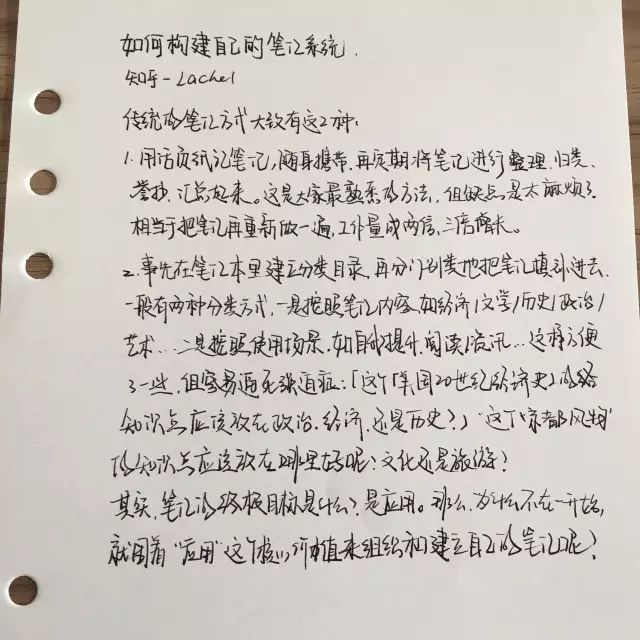 如何构建自己的笔记系统.
知乎-Lachel
传统的笔记方式大致有这2种:
1.用活页纸记笔记,随身携带,再定期将笔记进行整理、归类、
誊抄、汇总起来。这是大家最熟悉的方法,但缺点是太麻烦了.
相当于把笔记再重新做一遍,工作量成两倍、三倍增长。
2.事先在笔记本里建立分类目录,再分门别类地把笔记填补进去.
一般有两种分类方式,一是按照笔记内容,如经济/文学/历史/政治/
艺术...二是按照使用场景,如自我提升、阅读、资讯...这样方便
了一些,但容易逼死强迫症:「这个《美国20世纪经济史》的
知识点应该放在政治、经济,还是历史?」"这个《京都风物》
的知识点应该放在哪里好呢?文化还是旅游?
其实,笔记的终极目标是什么?是应用。那么,为什么不在一开始,
就围着"应用"这个核心价值来组织和建立自己的笔记呢?